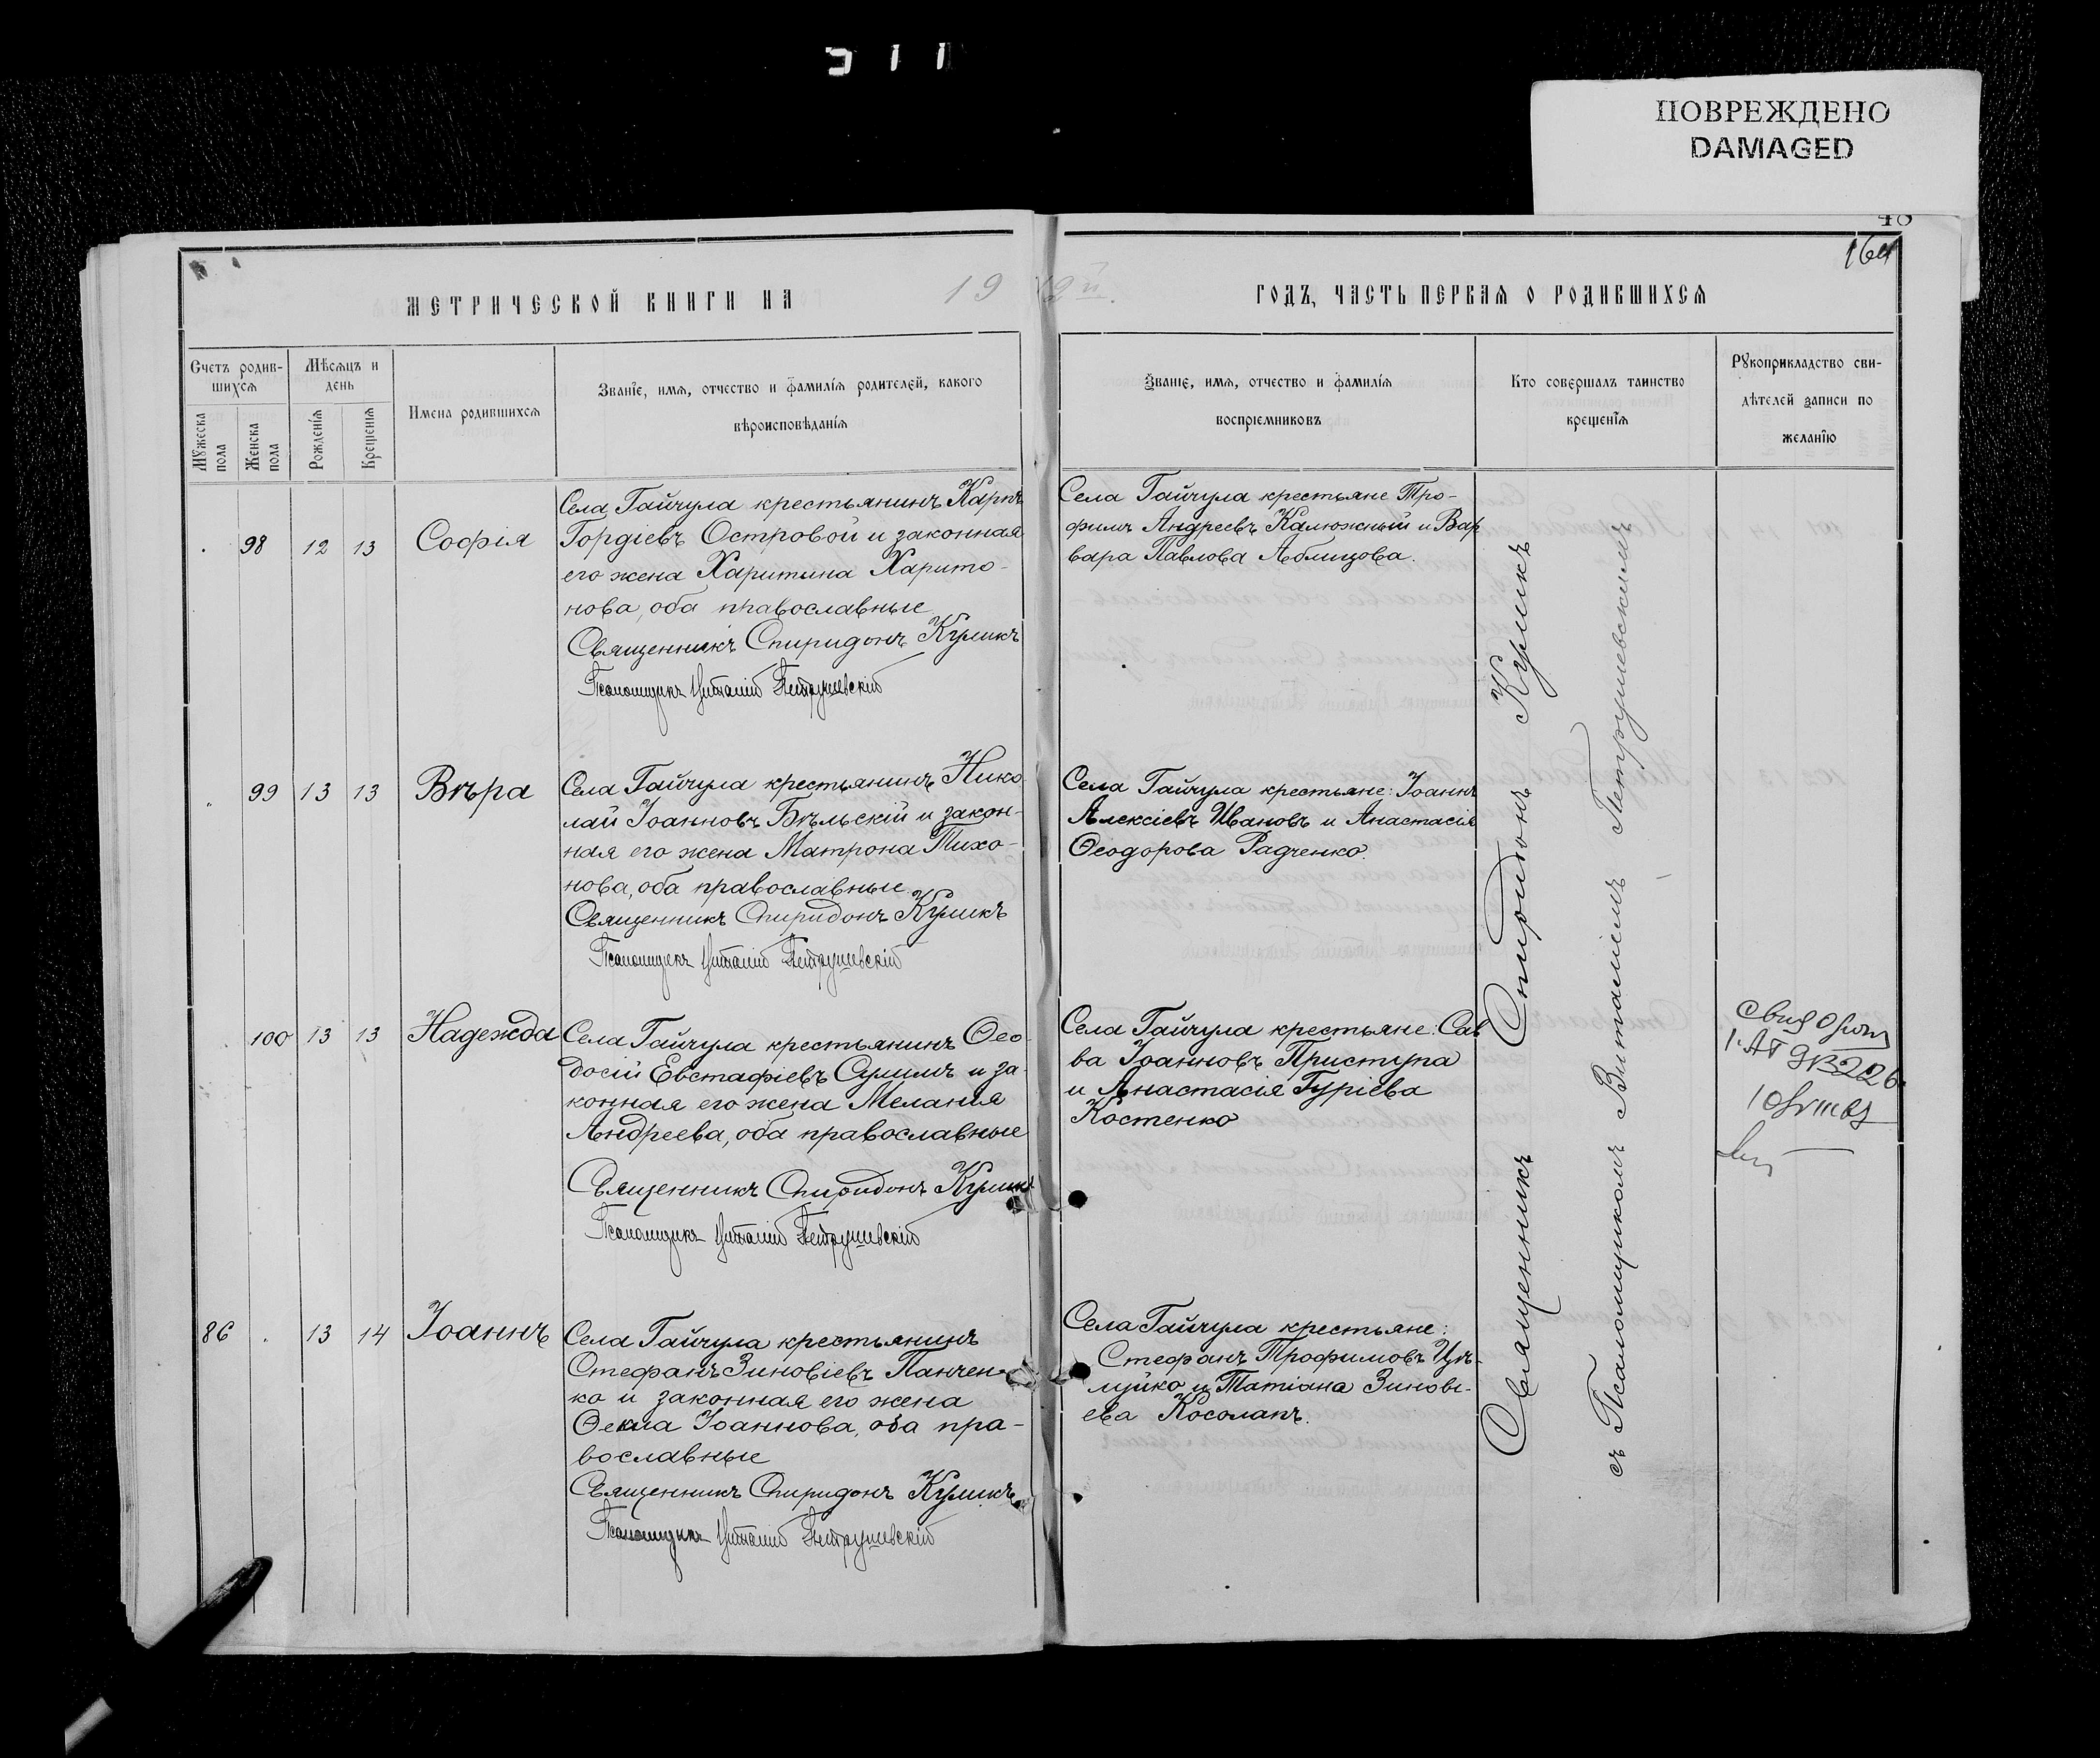 ПОВРЕЖДЕНО
DAMAGED
164
МЕТРИЧЕСКОЙ КНИГИ НА 19
12й ГОДЪ, ЧАСТЬ ПЕРВАЯ О РОДИВШИХСЯ
Счетъ родив-
шихся
Мѣсяцъ и
день
Мужеска
пола
Женска
пола
Рожденія
Крещенія
Имена родившихся
Званіе, имя, отчество и фамилія родителей, какого
вѣроисповѣданія
Званіе, имя, отчество и фамилія
воспріемниковъ
Кто совершалъ таинство
крещенія
Рукоприкладство сви-
дѣтелей записи по
желанію
98 12 13 Софія
Села Гайчула крестьянинъ Карпъ
Гордіевъ Островой и законная
его жена Харитина Харито-
нова, оба православные
Священникъ Спиридонъ Куликъ
Псаломщикъ Виталій Петрушевскій
Села Гайчула крестьяне Тро-
фимъ Андреевъ Калюжный и Вар
вара Павлова Аблицова.
99 13 13 Вѣра
Села Гайчула крестьянинъ Нико-
лай Іоанновъ Бѣльскій и закон-
ная его жена Матрона Тихо-
нова, оба православные
Священникъ Спиридонъ Куликъ
Псаломщикъ Виталій Петрушевскій
Села Гайчула крестьяне: Іоаннъ
Алексіевъ Ивановъ и Анастасія
Ѳеодорова Радченко.
100 13 13 Надежда
Села Гайчула крестьянинъ Ѳео-
досій Евстафіевъ Сулимъ и за-
конная его жена Мелания
Андреева, оба православные
Священникъ Спиридонъ Куликъ
Псаломщикъ Виталій Петрушевскій
Села Гайчула крестьяне: Сав
ва Іоанновъ Приступа
и Анастасія Гуріева
Костенко
86 13 14 Іоаннъ
Села Гайчула крестьянинъ
Стефанъ Зиновіевъ Панчен-
ко и законная его жена
Ѳекла Іоаннова, оба пра-
вославные
Священникъ Спиридонъ Куликъ
Псаломщикъ Виталій Петрушевскій
Села Гайчула крестьяне:
Стефанъ Трофимовъ Цѣ-
луйко и Татіана Зинові-
ева Косолапъ.
Священникъ Спиридонъ Куликъ
съ Псаломщикомъ Виталіемъ Петрушевскимъ